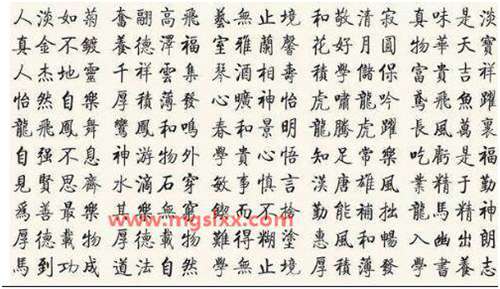 人淡如菊 奮翮高飛 藝無止境 和敬清寂 真味是淡
真金不鍍 養德澤福 室雅蘭馨 花好月圓 物華天寶
人杰地靈 千祥雲集 琴酒相壽 積學儲保 富貴吉祥
怡然自樂 厚積薄發 心曠神怡 虎嘯龍吟 鳶飛魚躍
龍飛鳳舞 鸞鳳和鳴 春和景明 龍騰虎躍 長風萬裏
自强不息 神游物外 學貴心悟 知足常樂 吃虧是福
見賢思齊 水滴石穿 敏事慎言 漢唐雄風 業精于勤
為善最樂 其 無 而不 勤能補拙 龍馬精神
www.mgslxx.com
厚德載物 厚德載物 難得糊塗 惠風和暢 入幽出朗
馬到功成 道法自然 學無止境 厚積薄發 學書養志